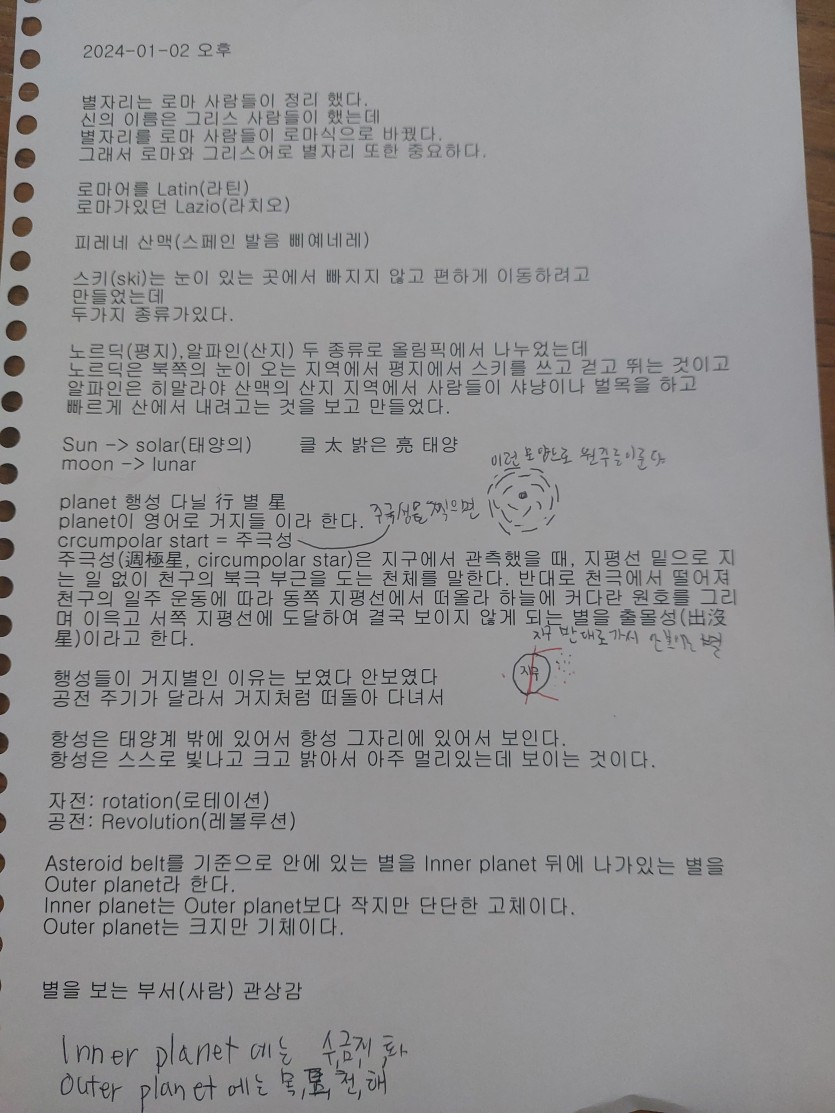 2024-01-02 오후
별자리는 로마 사람들이 정리 했다.
신의 이름은 그리스 사람들이 했는데
별자리를 로마 사람들이 로마식으로 바꿨다.
그래서 로마와 그리스어로 별자리 또한 중요하다.
로마어를 Latin(라틴)
로마가있던 Lazio(라치오)
피레네 산맥(스페인 발음 삐예네레)
스키(ski)는 눈이 있는 곳에서 빠지지 않고 편하게 이동하려고
만들었는데
두가지 종류가있다.
노르딕(평지),알파인(산지) 두 종류로 올림픽에서 나누었는데
노르딕은 북쪽의 눈이 오는 지역에서 평지에서 스키를 쓰고 걷고 뛰는 것이고
알파인은 히말라야 산맥의 산지 지역에서 사람들이 샤냥이나 벌목을 하고
빠르게 산에서 내려고는 것을 보고 만들었다.
Sun -> solar(태양의) 클 太 밝은 亮 태양
moon -> lunar
이런 모양으로 원주를이룬다
planet 행성 다닐 行 별 星
planet이 영어로 거지들 이라 한다. 주극성을 찍으면
crcumpolar start = 주극성
주극성(週極星, circumpolar star)은 지구에서 관측했을 때, 지평선 밑으로 지
는 일 없이 천구의 북극 부근을 도는 천체를 말한다. 반대로 천극에서 떨어져
천구의 일주 운동에 따라 동쪽 지평선에서 떠올라 하늘에 커다란 원호를 그리
며 이윽고 서쪽 지평선에 도달하여 결국 보이지 않게 되는 별을 출몰성(出沒
星)이라고 한다.
지구 반대로가서 안보이는 별
지구
행성들이 거지별인 이유는 보였다 안보였다
공전 주기가 달라서 거지처럼 떠돌아 다녀서
항성은 태양계 밖에 있어서 항성 그자리에 있어서 보인다.
항성은 스스로 빛나고 크고 밝아서 아주 멀리있는데 보이는 것이다.
자전: rotation(로테이션)
공전: Revolution(레볼루션)
Asteroid belt를 기준으로 안에 있는 별을 Inner planet 뒤에 나가있는 별을
Outer planet라 한다.
Inner planet는 Outer planet보다 작지만 단단한 고체이다.
Outer planet는 크지만 기체이다.
별을 보는 부서(사람) 관상감
Inner planet 에는 수,금,지,화
Outer planet 에는 목,토,천,해